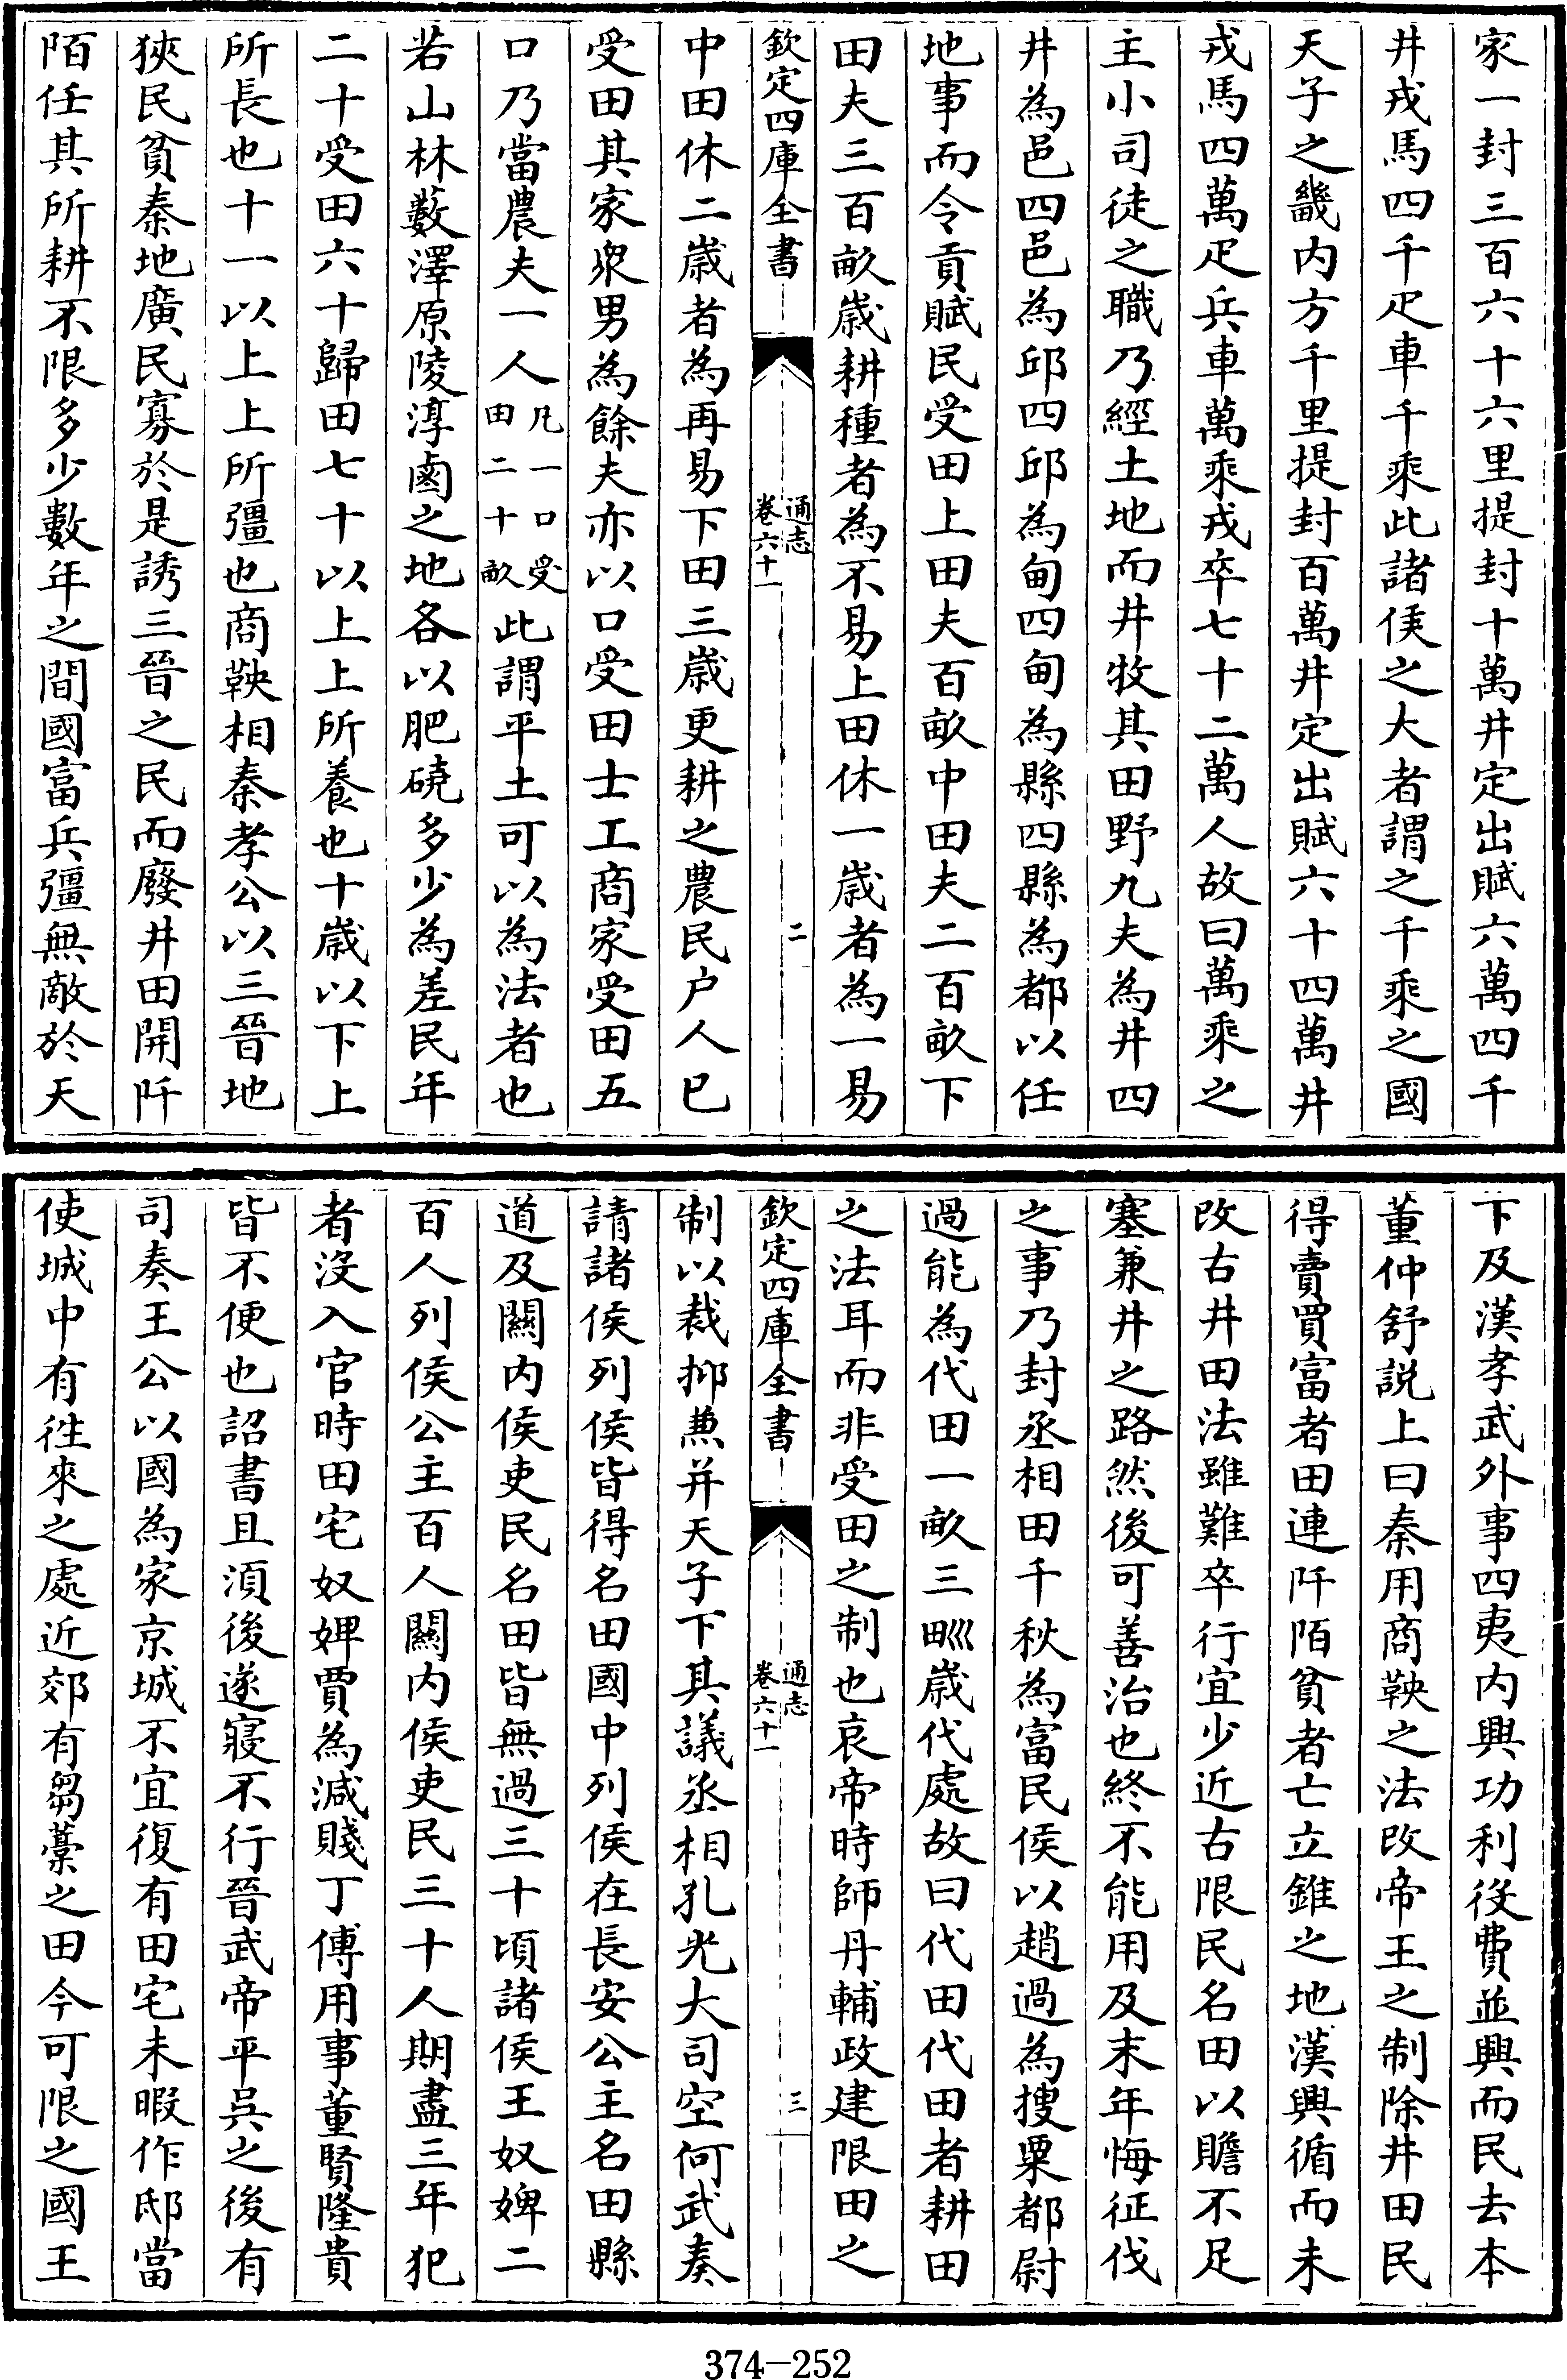 家一封三百六十六里提封十萬井定出賦六萬四千
井戎馬四千疋車千乘此諸侯之大者謂之千乘之國
天子之畿内方千里提封百萬井定出賦六十四萬井
戎馬四萬疋兵車萬乘戎卒七十二萬人故曰萬乘之
主小司徒之職乃經土地而井牧其田野九夫為井四
井為邑四邑為邱四邱為甸四甸為縣四縣為都以任
地事而令貢賦民受田上田夫百畝中田夫二百畝下
田夫三百畝歲耕種者為不易上田休一歲者為一易
欽定四庫全書
通志
卷六十一
二
中田休二歲者為再易下田三歲更耕之農民户人已
受田其家衆男為餘夫亦以口受田士工商家受田五
口乃當農夫一人凡一口受田二十畝此謂平土可以為法者也
若山林藪澤原陵淳鹵之地各以肥磽多少為差民年
二十受田六十歸田七十以上上所養也十歲以下上
所長也十一以上上所彊也商鞅相秦孝公以三晉地
狹民貧秦地廣民寡於是誘三晉之民而廢井田開阡
陌任其所耕不限多少數年之間國富兵彊無敵於天
下及漢孝武外事四夷内興功利役費並興而民去本
董仲舒説上曰秦用商鞅之法改帝王之制除井田民
得賣買富者田連阡陌貧者亡立錐之地漢興循而未
改古井田法雖難卒行宜少近古限民名田以贍不足
塞兼井之路然後可善治也終不能用及末年悔征伐
之事乃封丞相田千秋為富民侯以趙過為搜粟都尉
過能為代田一畝三甽歲代處故曰代田代田者耕田
之法耳而非受田之制也哀帝時師丹輔政建限田之
欽定四庫全書
通志
卷六十一
三
制以裁抑兼并天子下其議丞相孔光大司空何武奏
請諸侯列侯皆得名田國中列侯在長安公主名田縣
道及關内侯吏民名田皆無過三十頃諸侯王奴婢二
百人列侯公主百人關内侯吏民三十人期盡三年犯
者没入官時田宅奴婢賈為減賤丁傅用事董賢隆貴
皆不便也詔書且須後遂寢不行晉武帝平吳之後有
司奏王公以國為家京城不宜復有田宅未暇作邸當
使城中有往來之處近郊有芻藁之田今可限之國王
374-252